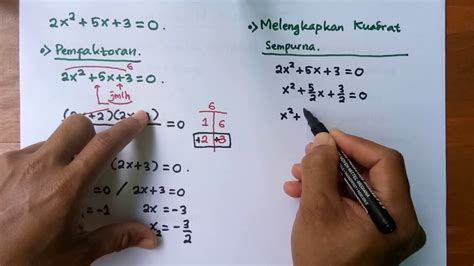 2x² + 5x + 3 = 0.
•> Pemfaktoran.
6
2x² + 5x + 3 = 0.
jmlh
(2x+2)(2x = 0
6
1 6
+2 +3
(2x+3) = 0
= 0 / 2x+3 = 0
= -1 2x = -3
x₂ = -3/2
•> Melengkapkan Kuadrat
Sempurna.
2x² + 5x + 3 = 0
x² + 5/2 x + 3/2 = 0
x² +